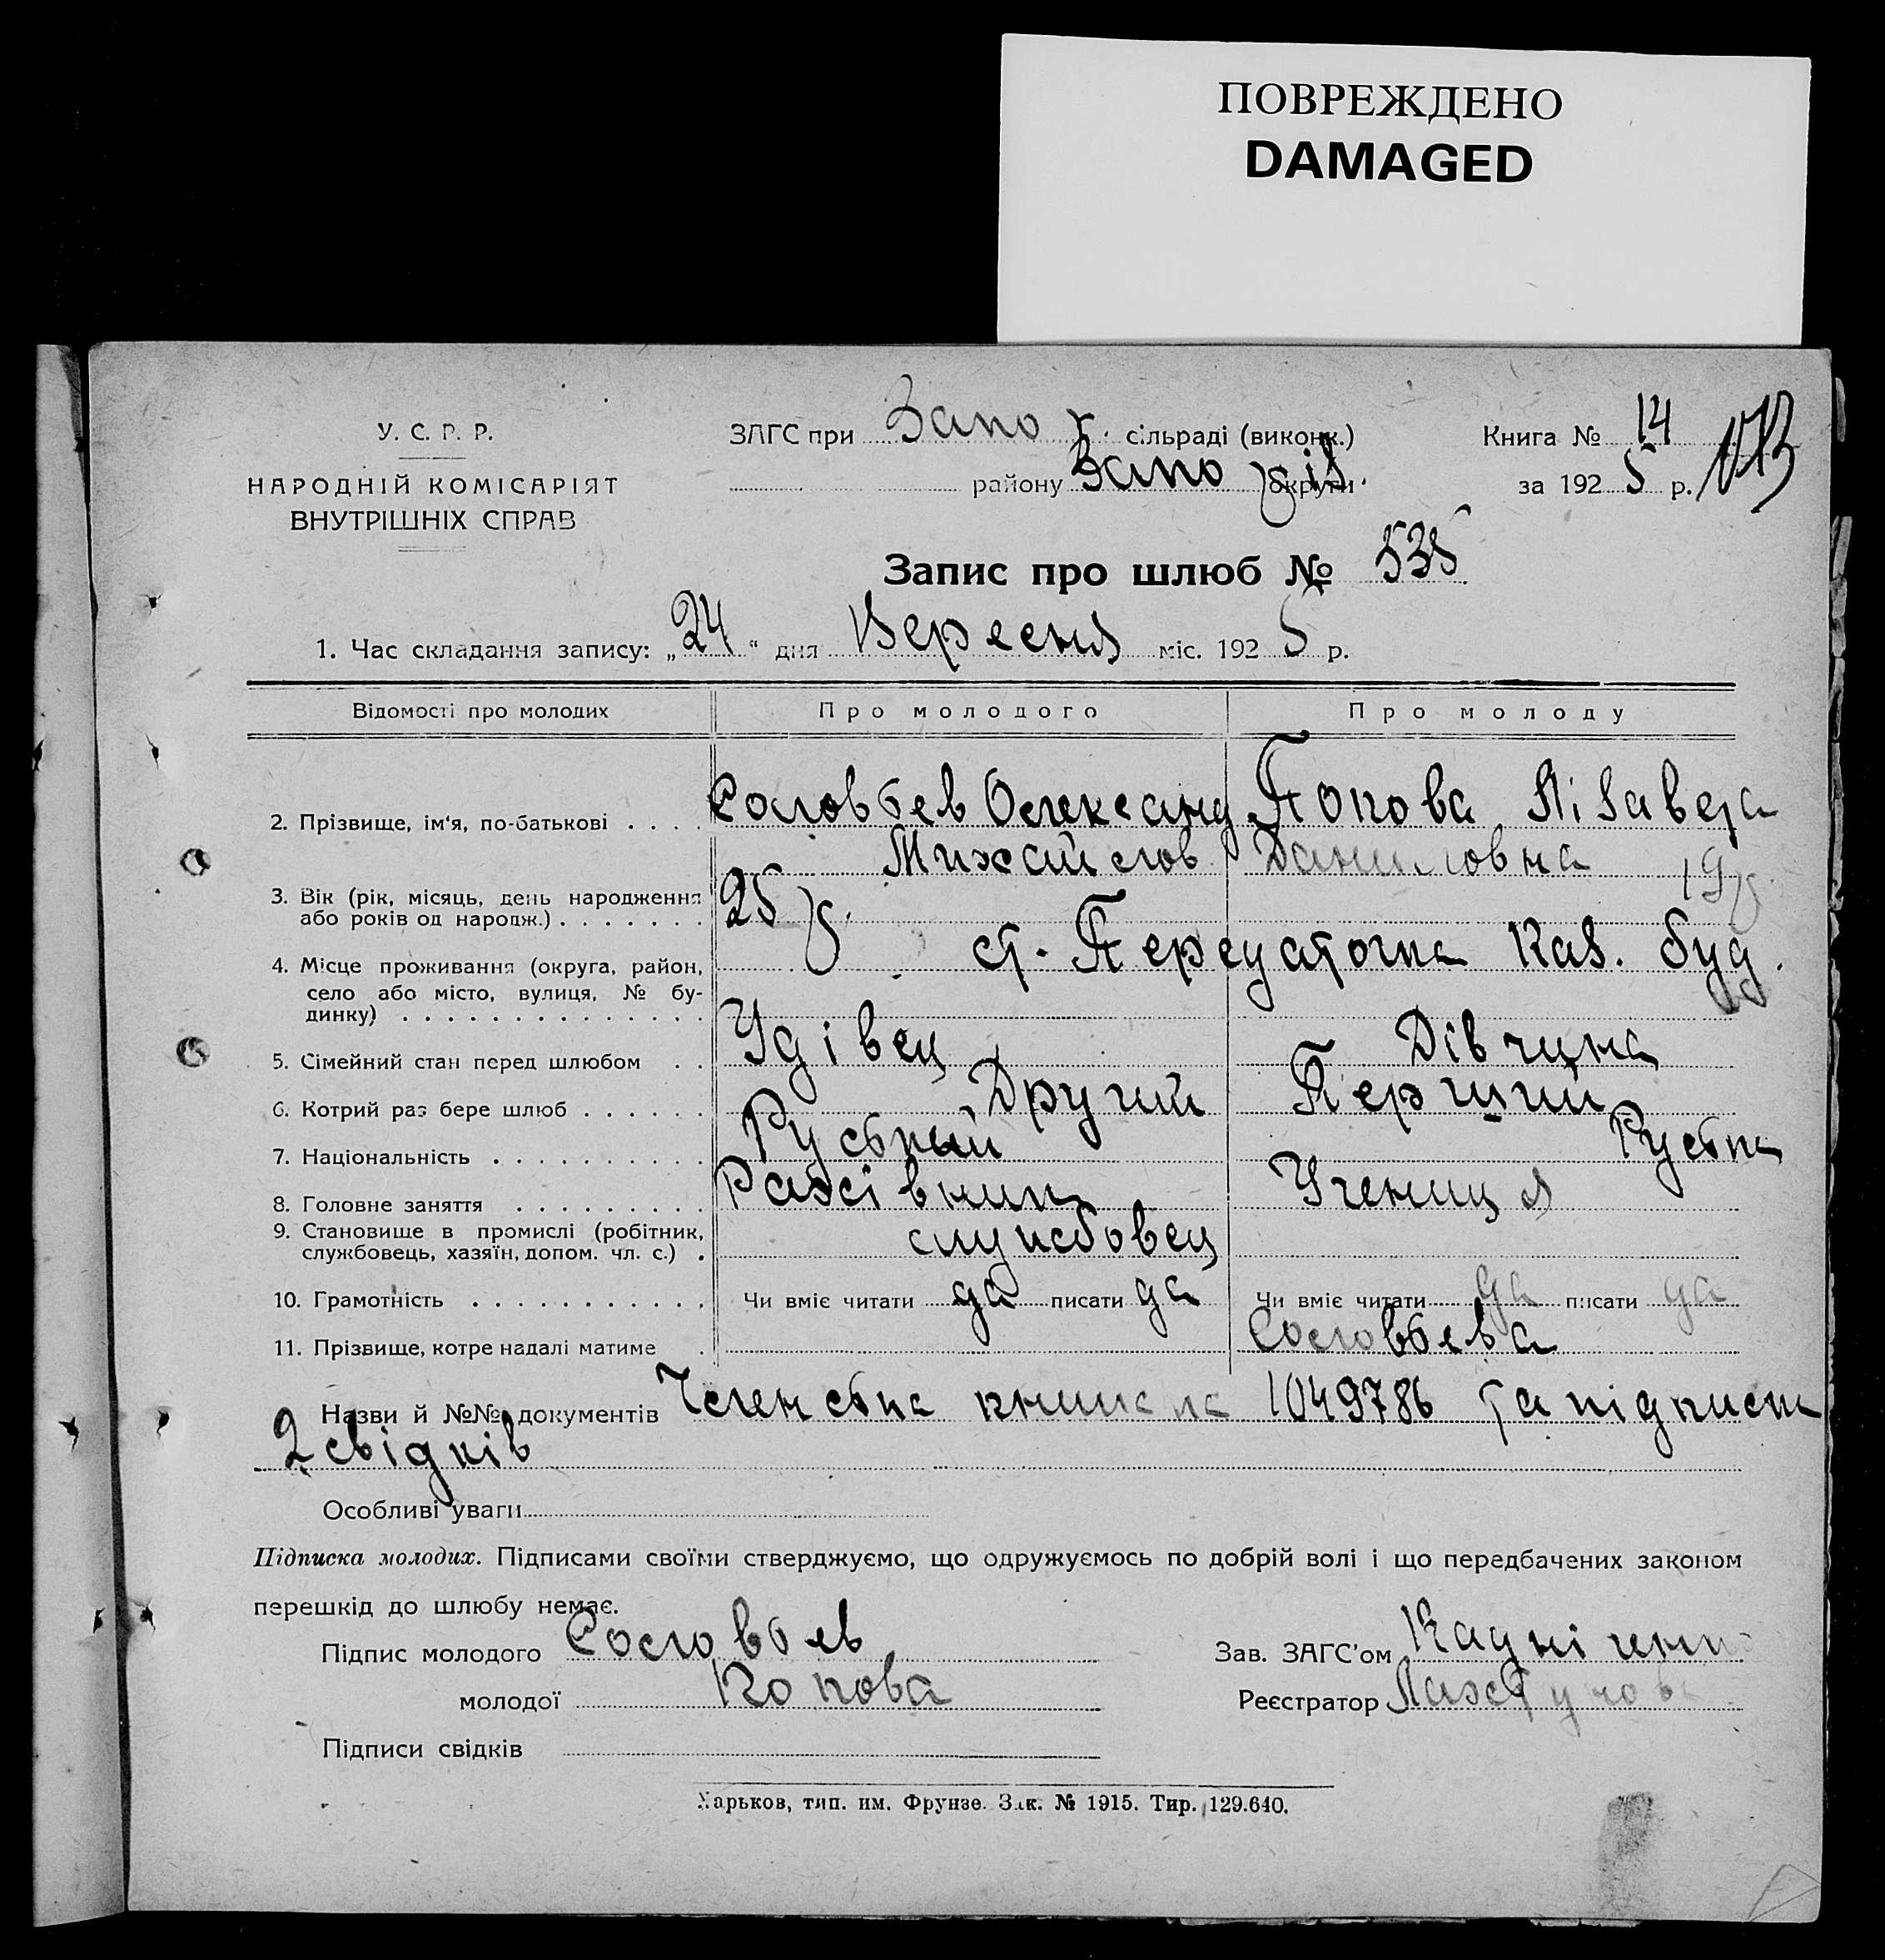 ПОВРЕЖДЕНО
DAMAGED
У. С. Р. Р.
НАРОДНІЙ КОМІСАРІЯТ
ВНУТРІШНІХ СПРАВ
ЗАГС при Запо сільраді (виконк.)
району Запо округи
Книга № 14
за 1925 р.
Запис про шлюб № 535
1. Час складання запису: „24“ дня Вересня міс. 1925 р.
Відомості про молодих Про молодого Про молоду
2. Прізвище, ім'я, по-батькові . . . . Соловьев Олександ Попова Лізавета
Михайлов Даниловна
3. Вік (рік, місяць, день народження
або років од народж.) . . . . . . . 25 р. 19 р.
4. Місце проживання (округа, район,
село або місто, вулиця, № бу-
динку) . . . . . . . . . . . . . . ст. Передаточна Каз. буд.
5. Сімейний стан перед шлюбом . . Удівец Дівчина
6. Котрий раз бере шлюб . . . . . . Другий Перший
7. Національність . . . . . . . . . . Руський Руська
8. Головне заняття . . . . . . . . . Рахівник Учениця
9. Становище в промислі (робітник,
службовець, хазяїн, допом. чл. с.) . службовец
10. Грамотність . . . . . . . . . . . Чи вміє читати да писати да Чи вміє читати да писати да
11. Прізвище, котре надалі матиме . Соловьева
Назви й №№ документів Членська книжка 1049786 та підписка
2 свідків
Особливі уваги
Підписка молодих. Підписами своїми стверджуємо, що одружуємось по добрій волі і що передбачених законом
перешкід до шлюбу немає.
Підпис молодого Соловьев
молодої Попова
Підписи свідків
Зав. ЗАГС'ом
Реєстратор
Харьков, тип. им. Фрунзе. Зак. № 1915. Тир. 129.640.